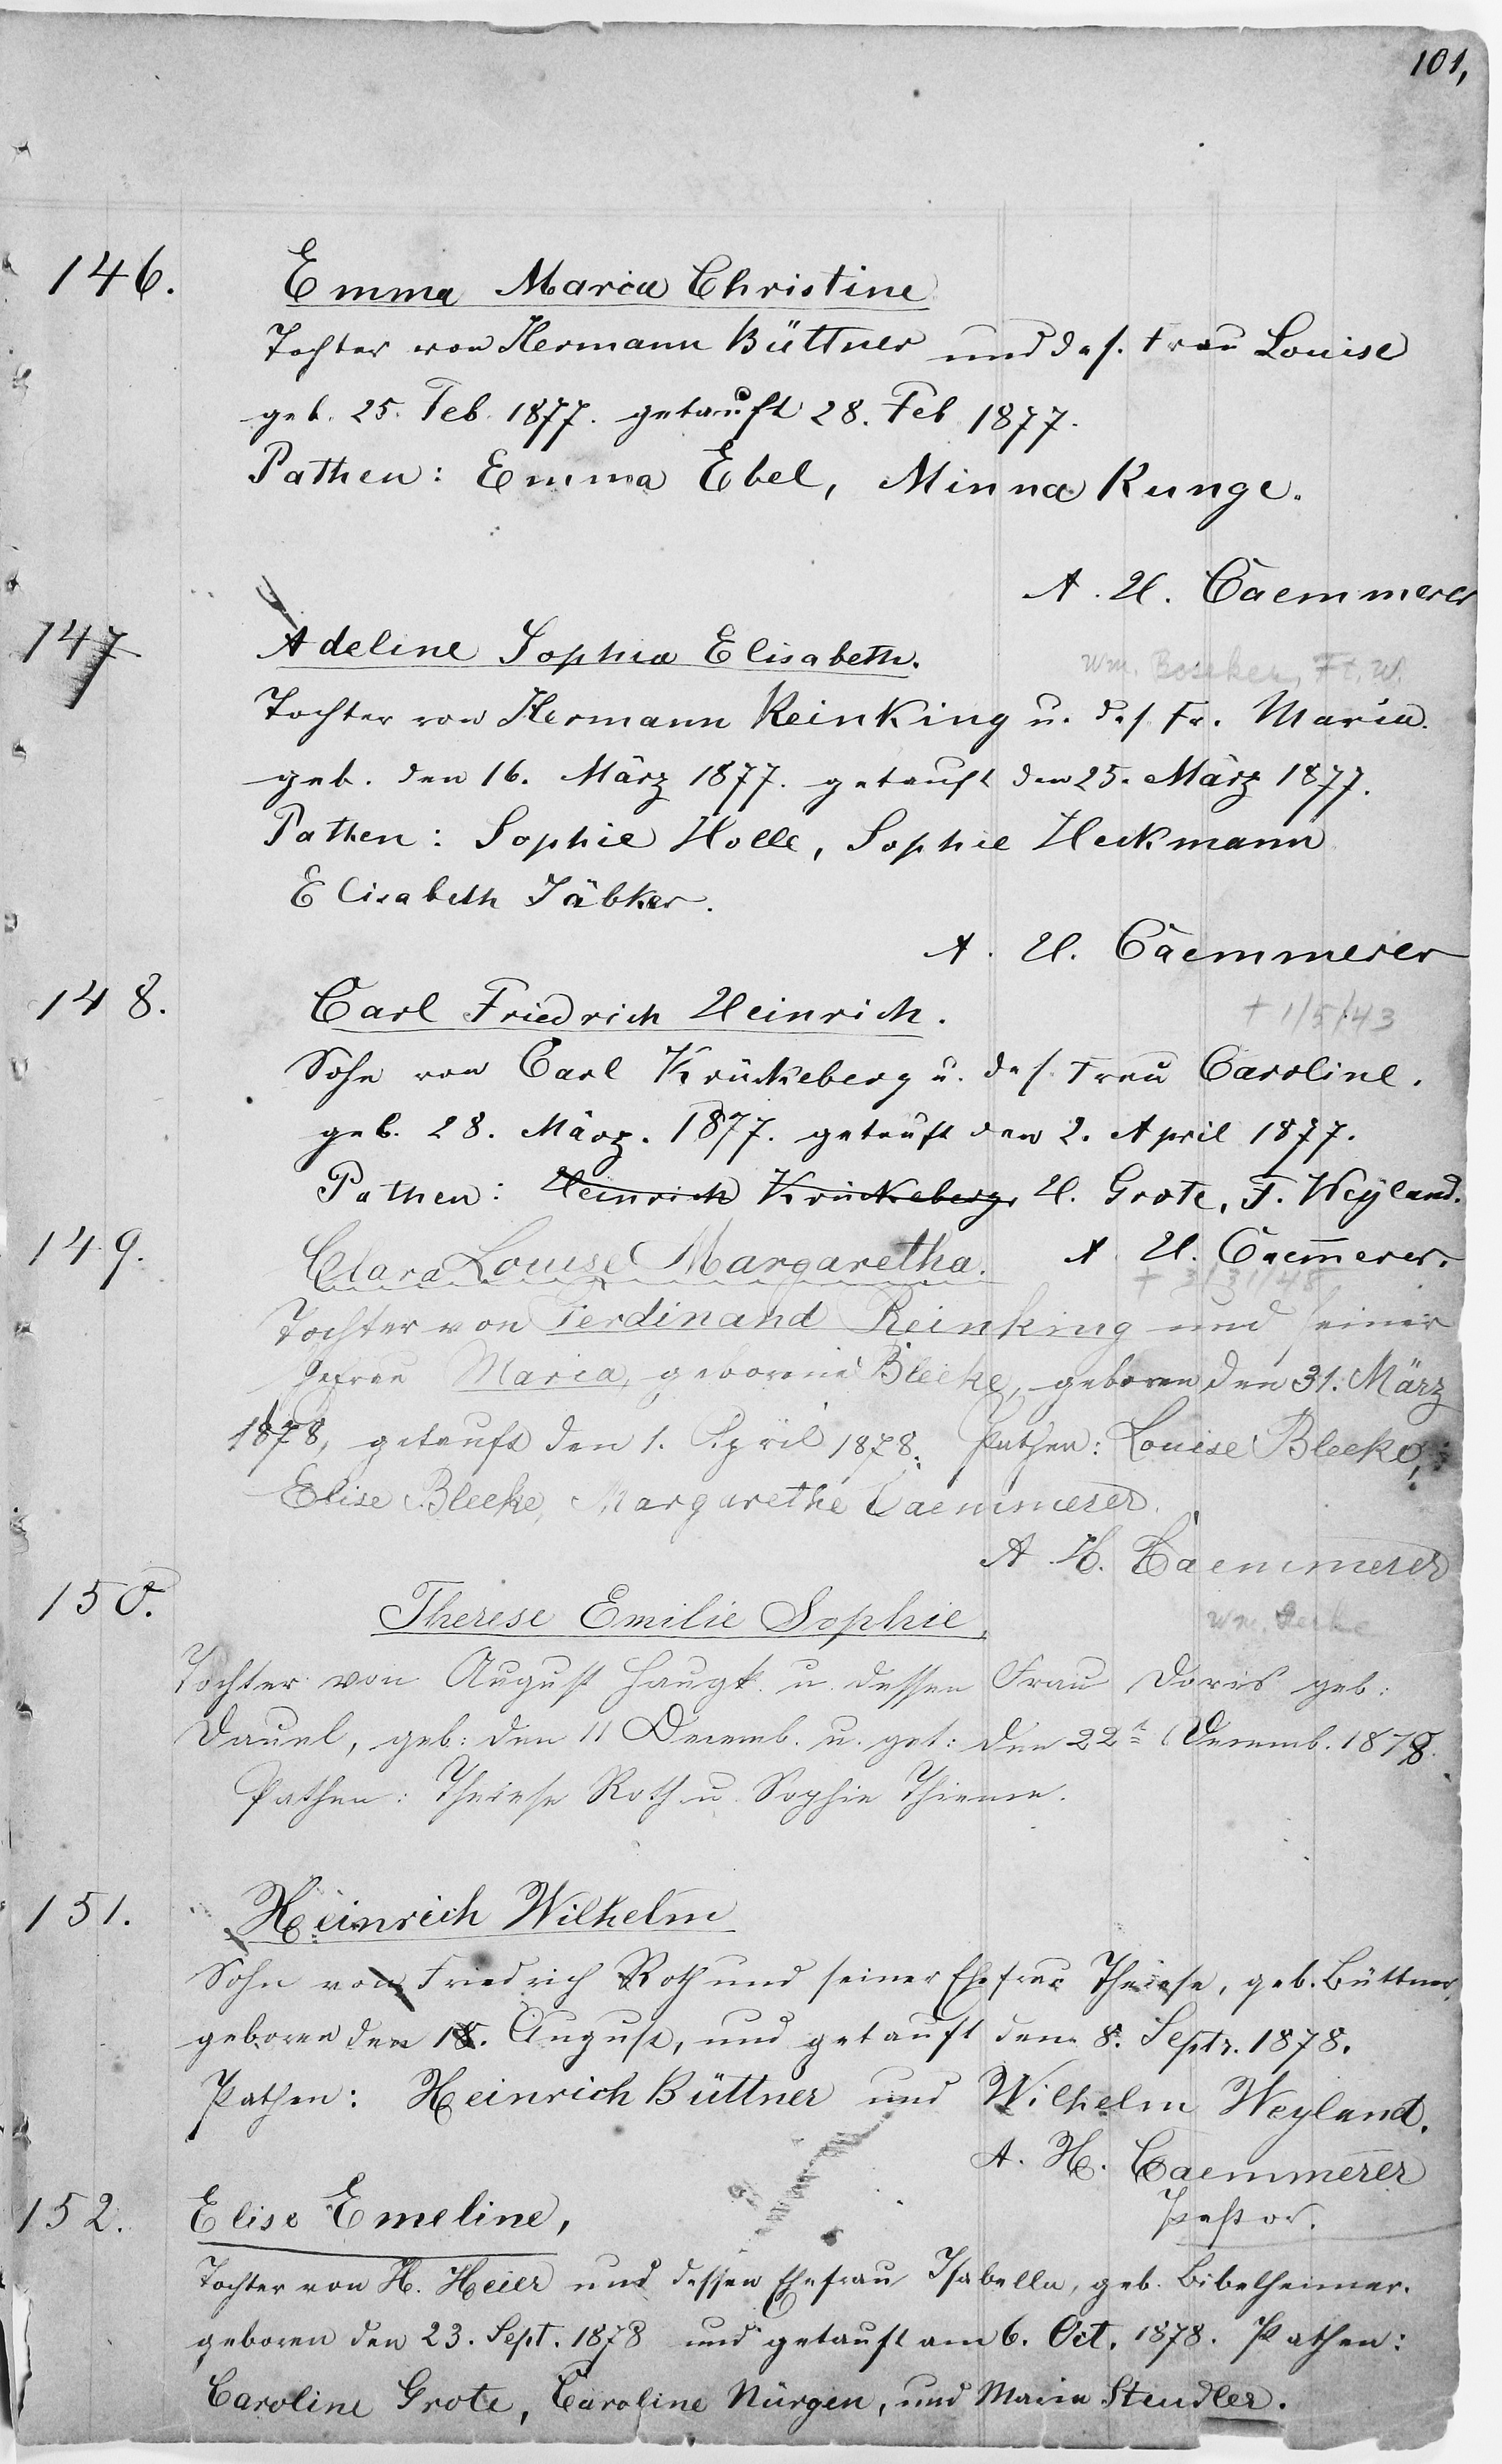 101,
146. Emma Maria Christine
Tochter von Hermann Büttner und des. Frau Louise
geb. 25. Feb. 1877. getauft 28. Feb 1877.
Pathen: Emma Ebel, Minna Runge.
A. H. Caemmerer
147 Adeline Sophia Elisabeth.
Wm. Boseker, Ft. W.
Tochter von Hermann Reinking u. des Fr. Maria.
geb. den 16. März 1877. getauft den 25. März 1877.
Pathen: Sophie Holle, Sophie Heckmann
Elisabeth Jäbker.
A. H. Caemmerer
148. Carl Friedrich Heinrich.
+ 1/5/43
Sohn von Carl Krückeberg u. des Frau Caroline.
geb. 28. März. 1877. getauft den 2. April 1877.
Pathen: Heinrich Krückeberg, H. Grote, F. Weyland.
A. H. Caem̅erer.
149. Clara Louise Margaretha.
+ 3/31/48
Tochter von Ferdinand Reinking und seiner
Maria, geborene Bleeke, geboren den 31. März
1878, getauft den 1. April 1878. Pathen: Louise Bleeke,
Elise Bleeke, Margarethe Caemmerer.
A. H. Caemmerer
150. Therese Emilie Sophie,
Wm.
Tochter von August Haugk u. dessen Frau Doris geb:
Dauel, geb: den 11 Decemb. u. get: den 22t Decemb. 1878.
Pathen: Therese Roth u. Sophie Thieme.
151. Heinrich Wilhelm
Sohn von Friedrich Roth und seiner Ehefrau Therese, geb. Büttner,
geboren den 18. August, und getauft den 8. Septr. 1878.
Pathen: Heinrich Büttner und Wilhelm Weyland.
A. H. Caemmerer
Pastor.
152. Elise Emeline,
Tochter von H. Heier und dessen Ehefrau Isabella, geb. Bibelheimer.
geboren den 23. Sept. 1878 und getauft am 6. Oct. 1878. Pathen:
Caroline Grote, Caroline Nürgen, und Maria Stendler.